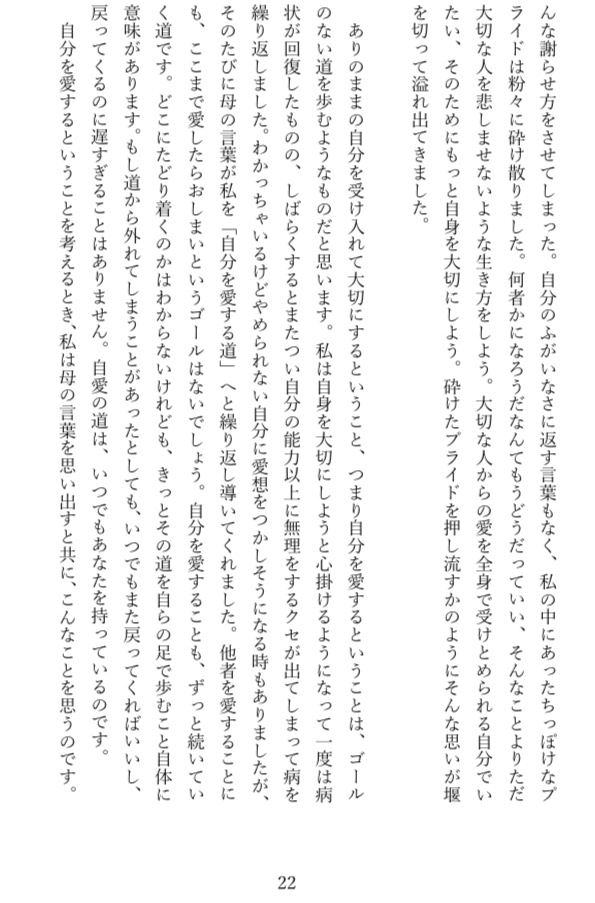 んな謝らせ方をさせてしまった。自分のふがいなさに返す言葉もなく、私の中にあったちっぽけなプ
ライドは粉々に砕け散りました。何者かになろうだなんてもうどうだっていい、そんなことよりただ
大切な人を悲しませないような生き方をしよう。大切な人からの愛を全身で受けとめられる自分でい
たい、そのためにもっと自身を大切にしよう。砕けたプライドを押し流すかのようにそんな思いが堰
を切って溢れ出てきました。
ありのままの自分を受け入れて大切にするということ、つまり自分を愛するということは、ゴール
のない道を歩むようなものだと思います。私は自身を大切にしようと心掛けるようになって一度は病
状が回復したものの、しばらくするとまたつい自分の能力以上に無理をするクセが出てしまって病を
繰り返しました。わかっちゃいるけどやめられない自分に愛想をつかしそうになる時もありましたが、
そのたびに母の言葉が私を「自分を愛する道」へと繰り返し導いてくれました。他者を愛することに
も、ここまで愛したらおしまいというゴールはないでしょう。自分を愛することも、ずっと続いてい
く道です。どこにたどり着くのかはわからないけれども、きっとその道を自らの足で歩むこと自体に
意味があります。もし道から外れてしまうことがあったとしても、いつでもまた戻ってくればいいし、
戻ってくるのに遅すぎることはありません。自愛の道は、いつでもあなたを持っているのです。
自分を愛するということを考えるとき、私は母の言葉を思い出すと共に、こんなことを思うのです。
22